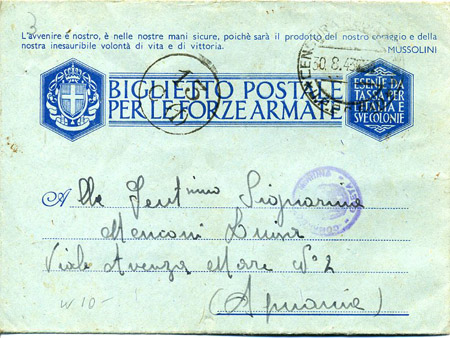 3
L'avvenire è nostro, è nelle nostre mani sicure, poichè sarà il prodotto del nostro coraggio e della
nostra inesauribile volontà di vita e di vittoria.
MUSSOLINI
BIGLIETTO POSTALE
PER LE FORZE ARMATE
ESENTE DA
TASSA PER
L'ITALIA E
SVE COLONIE
30.8.43
15
Alla Gent̅mma Signorina
Menconi Luisa
Viale Avenza Mare N° 2
(Apuania)
W 10-